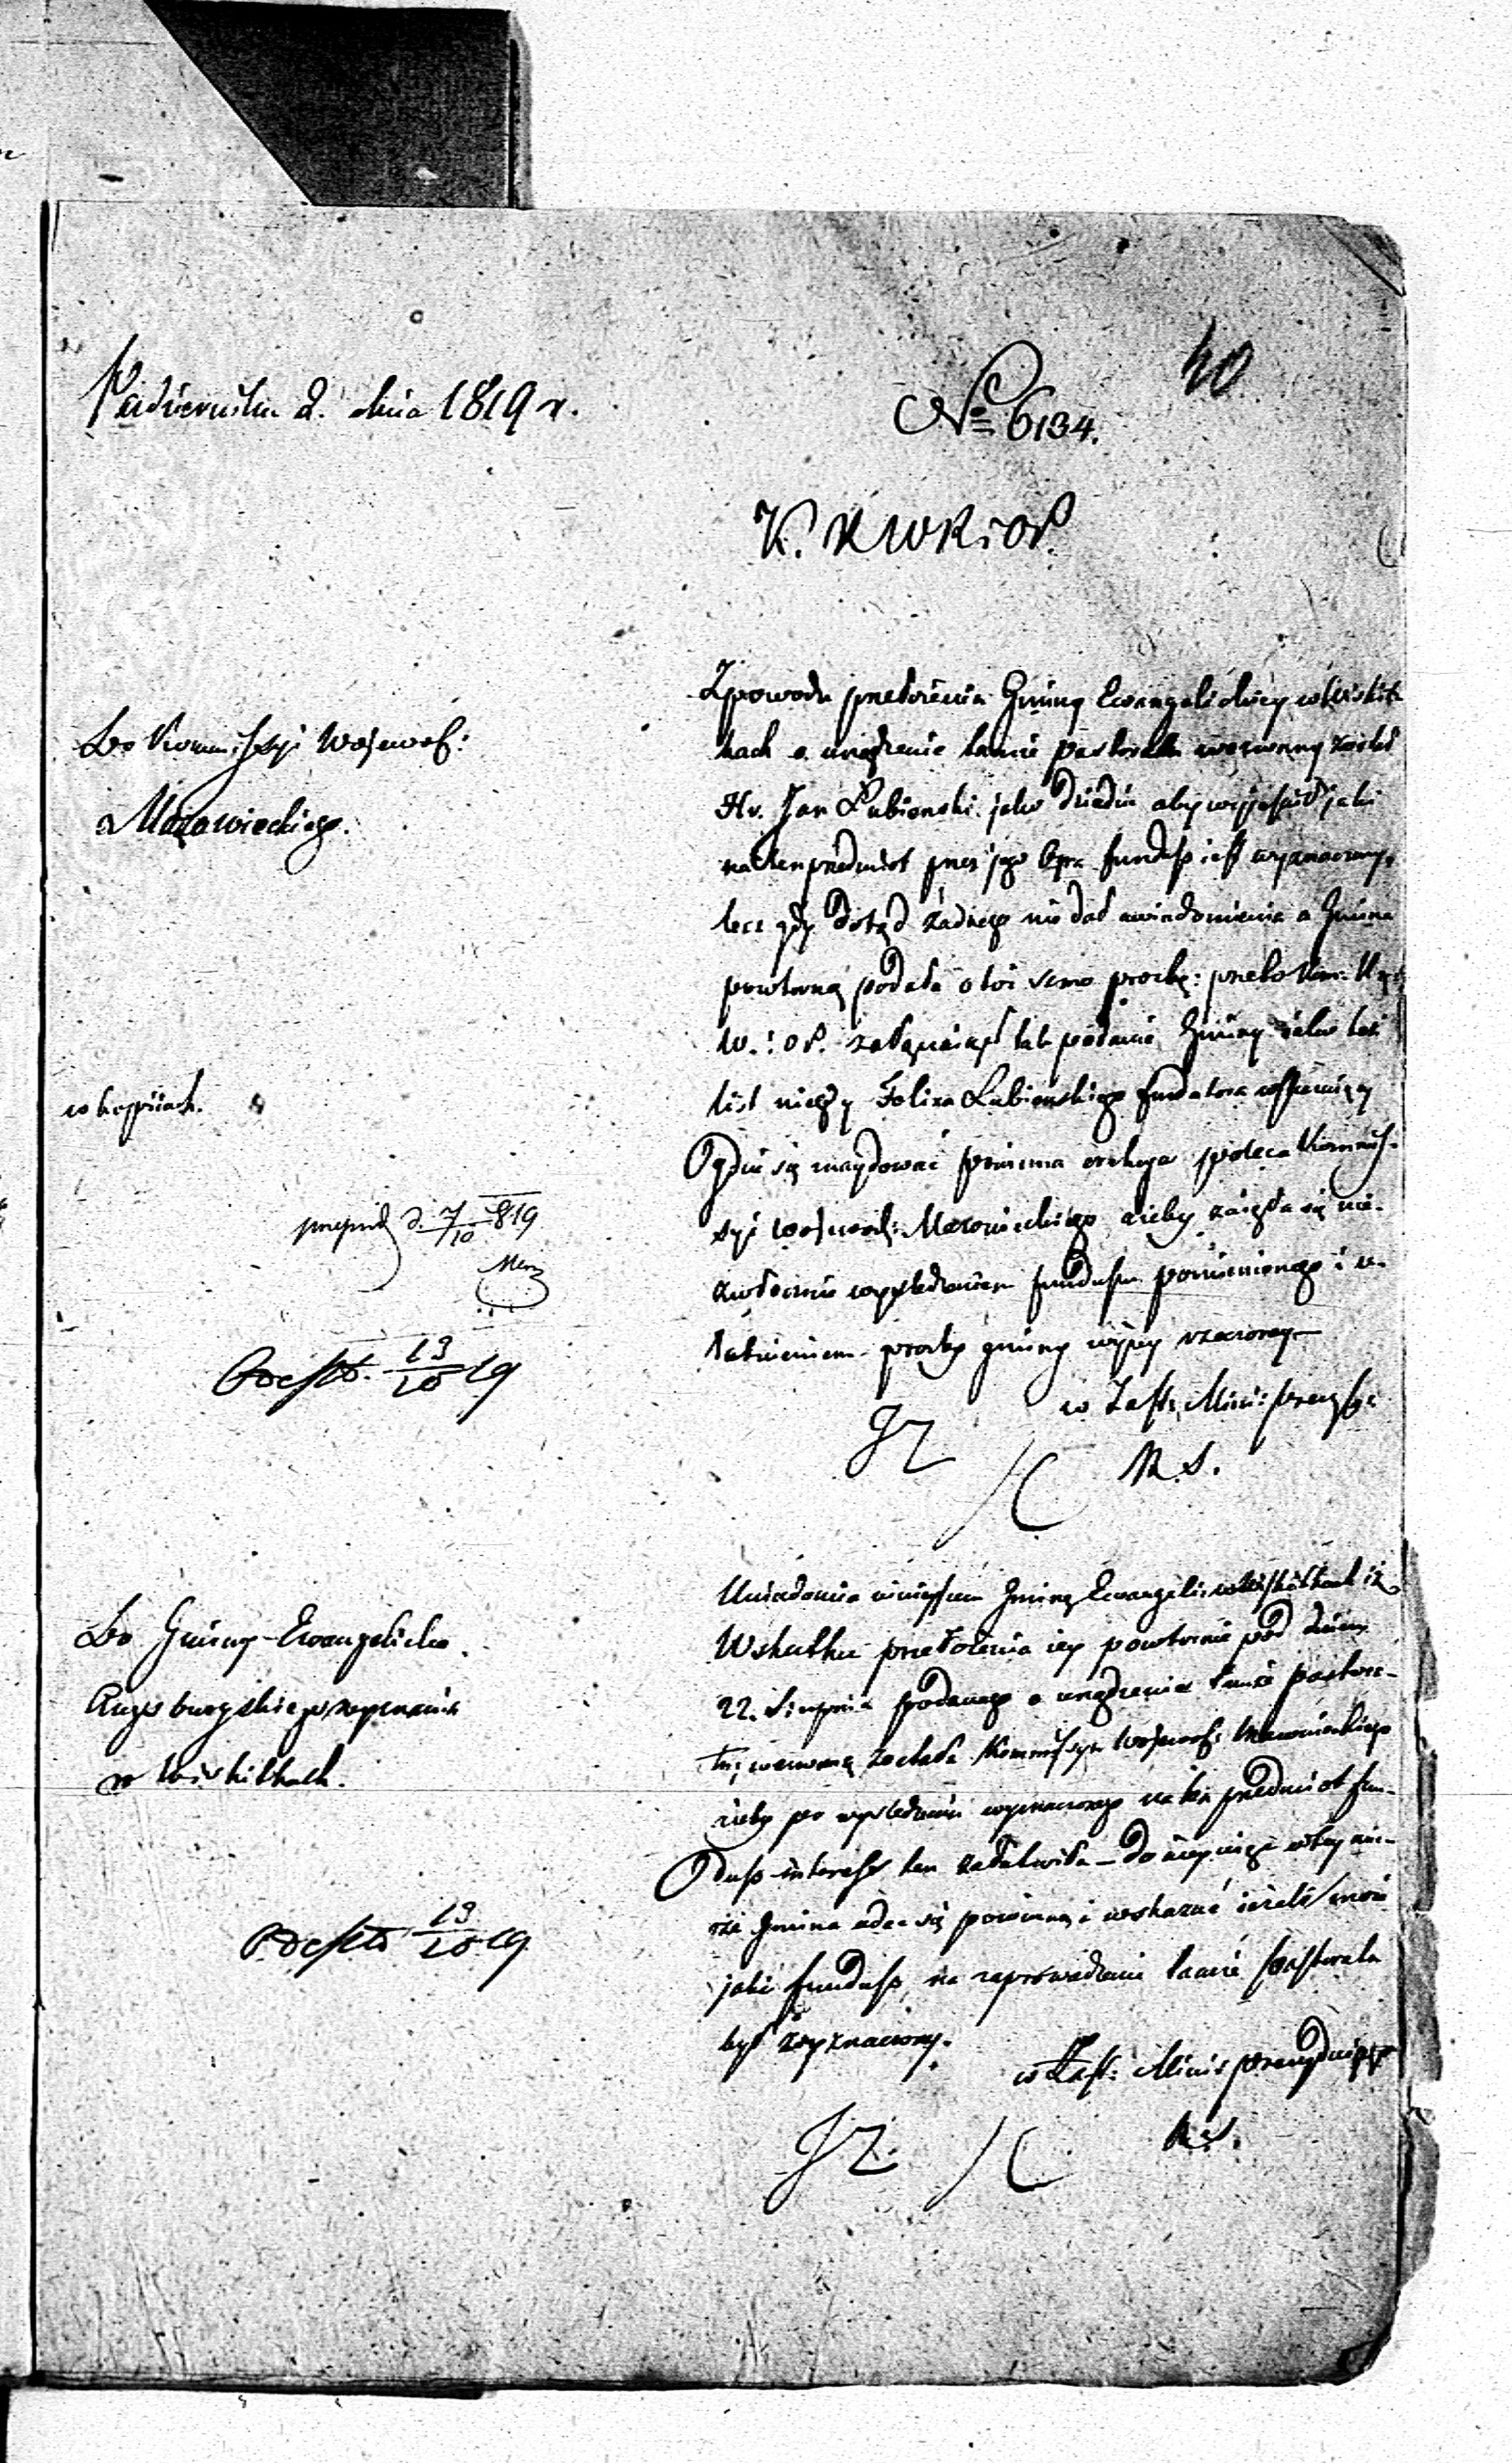 40
Października 2. dnia 1819 r.
No 6134.
K. R. W. R. i O. P.
Do Kommissyi Wojewod:
Mazowieckiego.
Z powodu przełożenia Gminy Ewangelickiey w Wiskit
kach o urządzenie tamże pastoratu wezwany został
Hr. Jan Łubienski jako dziedzic aby wyjaśnił jaki
na ten przedmiot przez jego fundusz iest wyznaczony,
lecz gdy dotąd żadnego nie dał uwiadomienia a Gmina
powtórną podała o toż samo prośbę: przeto Kom. Rzą
W. i O. P. załączając tak podanie Gminy iako też
w kopiiach.
list niegdy Felixa Lubienskiego fundatora
gdzie się znaydować powinna erekcya poleca Kommis-
syi Wojewodz: Mazowieckiego ażeby zaięła się nie-
zwłocznie wyśledzeniem funduszu pomienionego i u-
łatwieniem prośby gminy wyżey rzeczoney—
przepisał d. 7/10 819
Odeszło 13/10 19
w Zast. Minis: Prezyd
R. S.
Do Gminy Ewangelicko
Augsburgskiego wyznania
w Wiskitkach.
Uwiadomia niniejszem Gminę Ewangeli: w Wiskitkach iż
W skutku przełożenia iey powtórnie pod dniem
22. Sierpnia podanego o urządzenie tamże pastora-
tu, wezwaną została Kommissya Wojewod: Mazowieckiego
ażeby po wyśledzeniu wyznaczonego na ten przedmiot fun-
duszu interess ten załatwiła — do niey więc w tey mie-
rze Gmina udać się powinna i wskazać ieżeli może
jaki fundusz na zaprowadzenie tamże pastoratu
był wyznaczony.
Odeszło 13/10 19
w Zast: Minis Prezyduiącego
R. S.